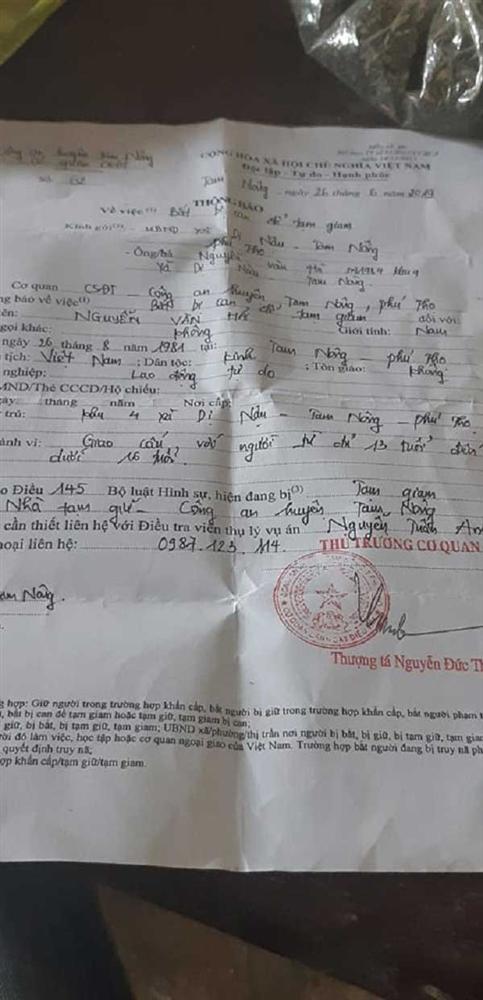 CỘNG HÒA XÃ HỘI CHỦ NGHĨA VIỆT NAM
Độc lập - Tự do - Hạnh phúc
Tam Nông, ngày 26 tháng 6 năm 2019
THÔNG BÁO
Về việc(1) Bắt bị can để tạm giam
Kính gửi:(2) - UBND xã Dị Nậu - Tam Nông
Phú Thọ
- Ông/bà Nguyễn
xã Dị Nậu
Tam Nông
Cơ quan CSĐT - Công an huyện Tam Nông, Phú Thọ
ng báo về việc(1) Bắt bị can để tạm giam đối với:
ên: NGUYỄN VĂN Giới tính: Nam
gọi khác: Không
ngày 26 tháng 8 năm 1981 tại: Tam Nông - Phú Thọ
tịch: Việt Nam; Dân tộc: Kinh; Tôn giáo: Không
nghiệp: Lao động tự do
MND/Thẻ CCCD/Hộ chiếu:
ày: tháng năm Nơi cấp:
trú: Khu 4 xã Dị Nậu - Tam Nông - Phú Thọ
ành vi: Giao cấu với người từ đủ 13 tuổi đến
dưới 16 tuổi
o Điều 145 Bộ luật Hình sự, hiện đang bị(3) Tạm giam
Nhà tạm giữ - Công an huyện Tam Nông
cần thiết liên hệ với Điều tra viên thụ lý vụ án Nguyễn Tuấn An
oại liên hệ: 0987.123.114.
THỦ TRƯỞNG CƠ QUAN
am Nông.
Thượng tá Nguyễn Đức Th
g hợp: Giữ người trong trường hợp khẩn cấp, bắt người bị giữ trong trường hợp khẩn cấp, bắt người phạm t
, bắt bị can để tạm giam hoặc tạm giữ, tạm giam bị can;
giữ, bị bắt, bị tạm giữ, tạm giam; UBND xã/phường/thị trấn nơi người bị bắt, bị giữ, bị tạm giữ, tạm giam
ười đó làm việc, học tập hoặc cơ quan ngoại giao của Việt Nam. Trường hợp bắt người đang bị truy nã ph
quyết định truy nã;
ợp khẩn cấp/tạm giữ/tạm giam.